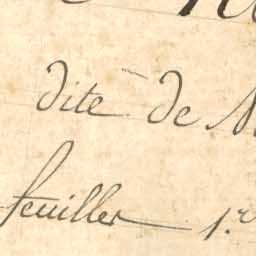 dite de
feuilles 1.r